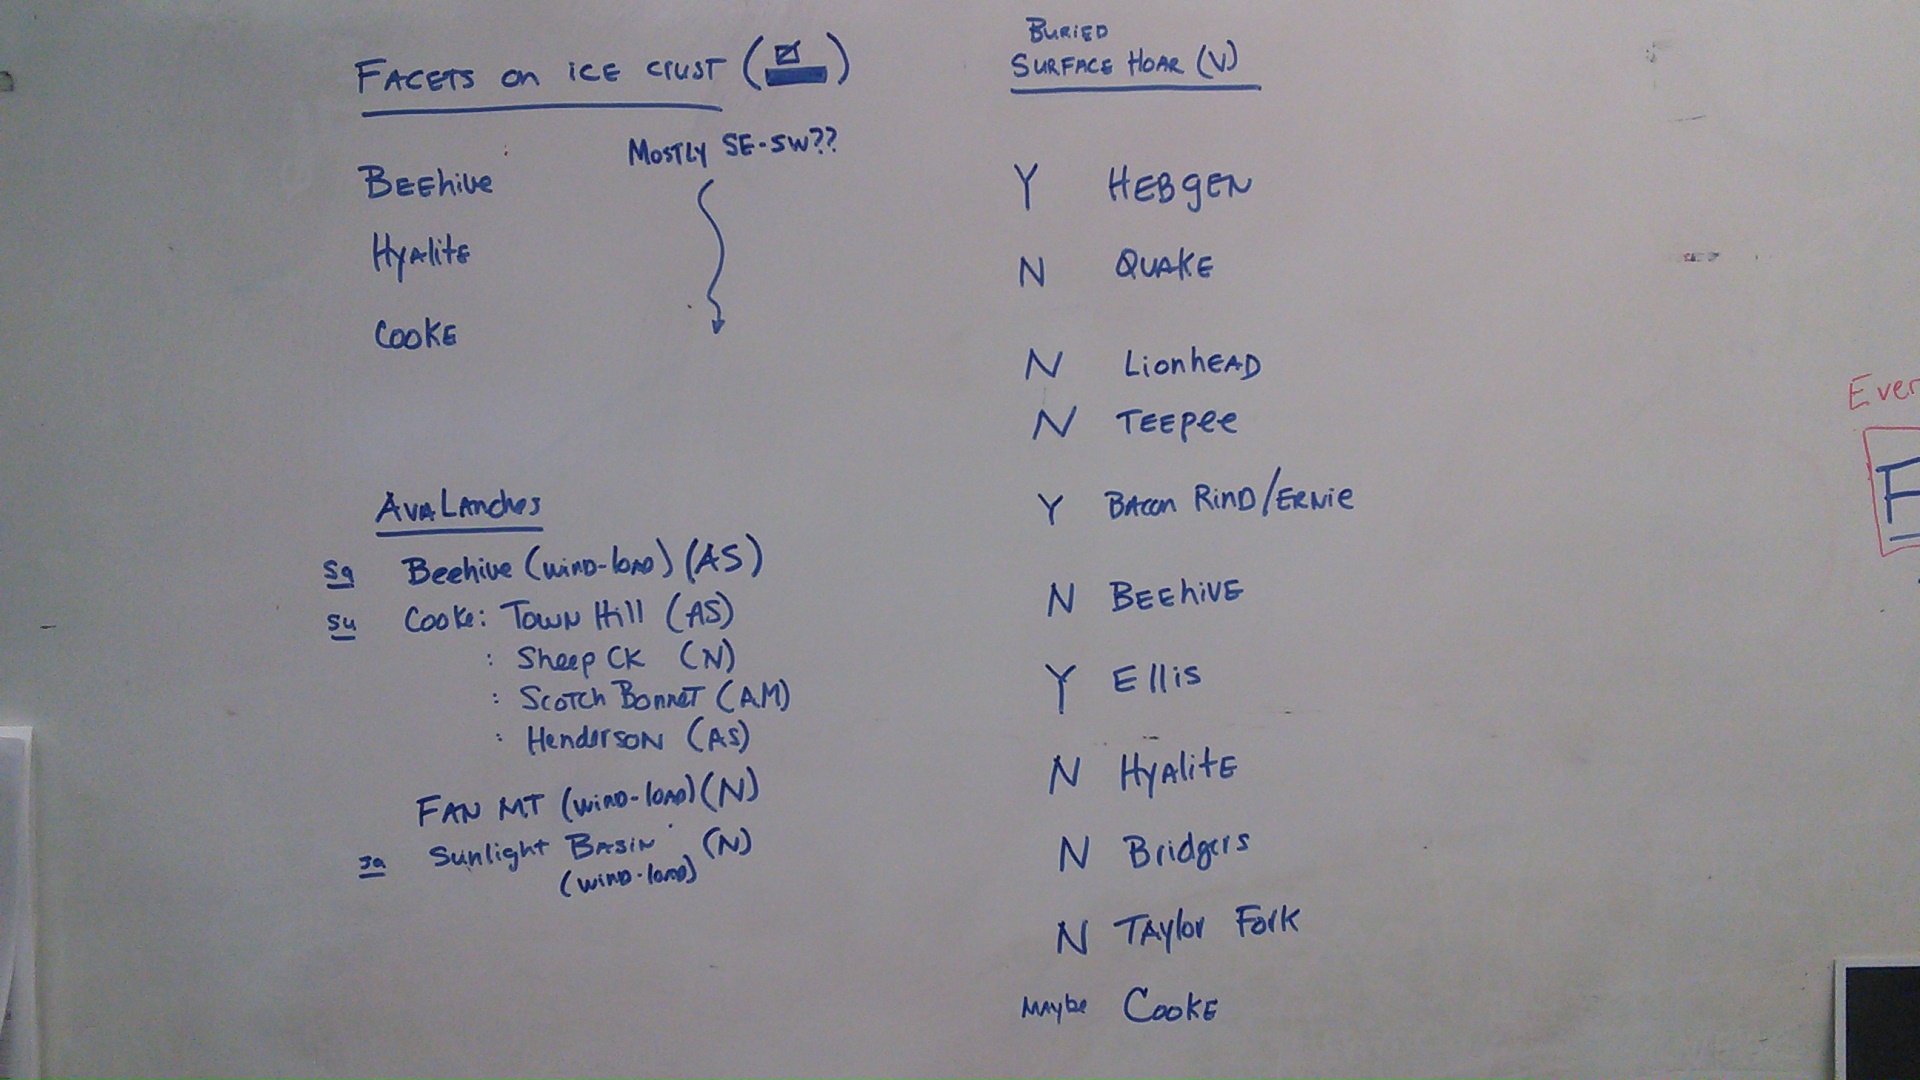 FACETS ON ICE CRUST ( )
MOSTLY SE-SW??
BEEhive
HyAlitE
COOKE
AVALAnches
Sa Beehive (WIND-LOAD) (AS)
Su Cooke: TOWN Hill (AS)
: Sheep CK (N)
: SCOTCH BONNET (AM)
: HENDERSON (AS)
FAN MT (WIND-LOAD) (N)
Sa Sunlight BASIN (N)
(WIND-LOAD)
BURIED
SURFACE HOAR (V)
Y HEBGEN
N QUAKE
N LionhEAD
N TEEPEE
Y BACON RIND/ERNIE
N BEEhIVE
Y Ellis
N HyAlitE
N Bridgers
N TAylor Fork
MAYbe COOKE
Ever
F